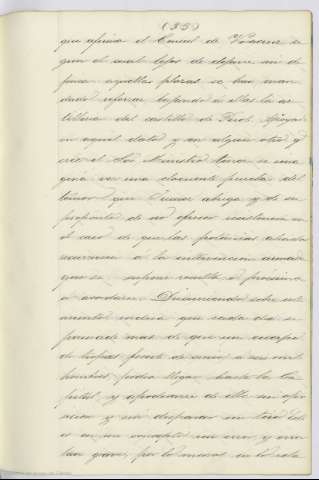 (35)
que afirma el Consul de Veracruz se
gun el cual lejos de dejarse in de
fensa aquellas plazas se han man
dado reforzar bajando á ellas la ar
tilleria del castillo de Perote. Apoyan
en aquel dato y en algun otro y
cree el Sor Ministro
ver una elocuente prueba del
temor que Juarez abriga y de su
proposito de no ofrecer resistencia en
el caso de que las potencias aliadas
recurriesen á la intervencion armada
que se supone resuelta ó próxima
á acordarse. Discurriendo sobre este
asunto indica que cada dia se
persuade mas de que un cuerpo
de tropas fuerte de cinco á seis mil
hombres podria llegar hasta la Ca
pital y apoderarse de ella sin opo
sicion y sin disparar un tiro. Este
es en mi concepto un error y error
tan grave, por lo menos en lo rela